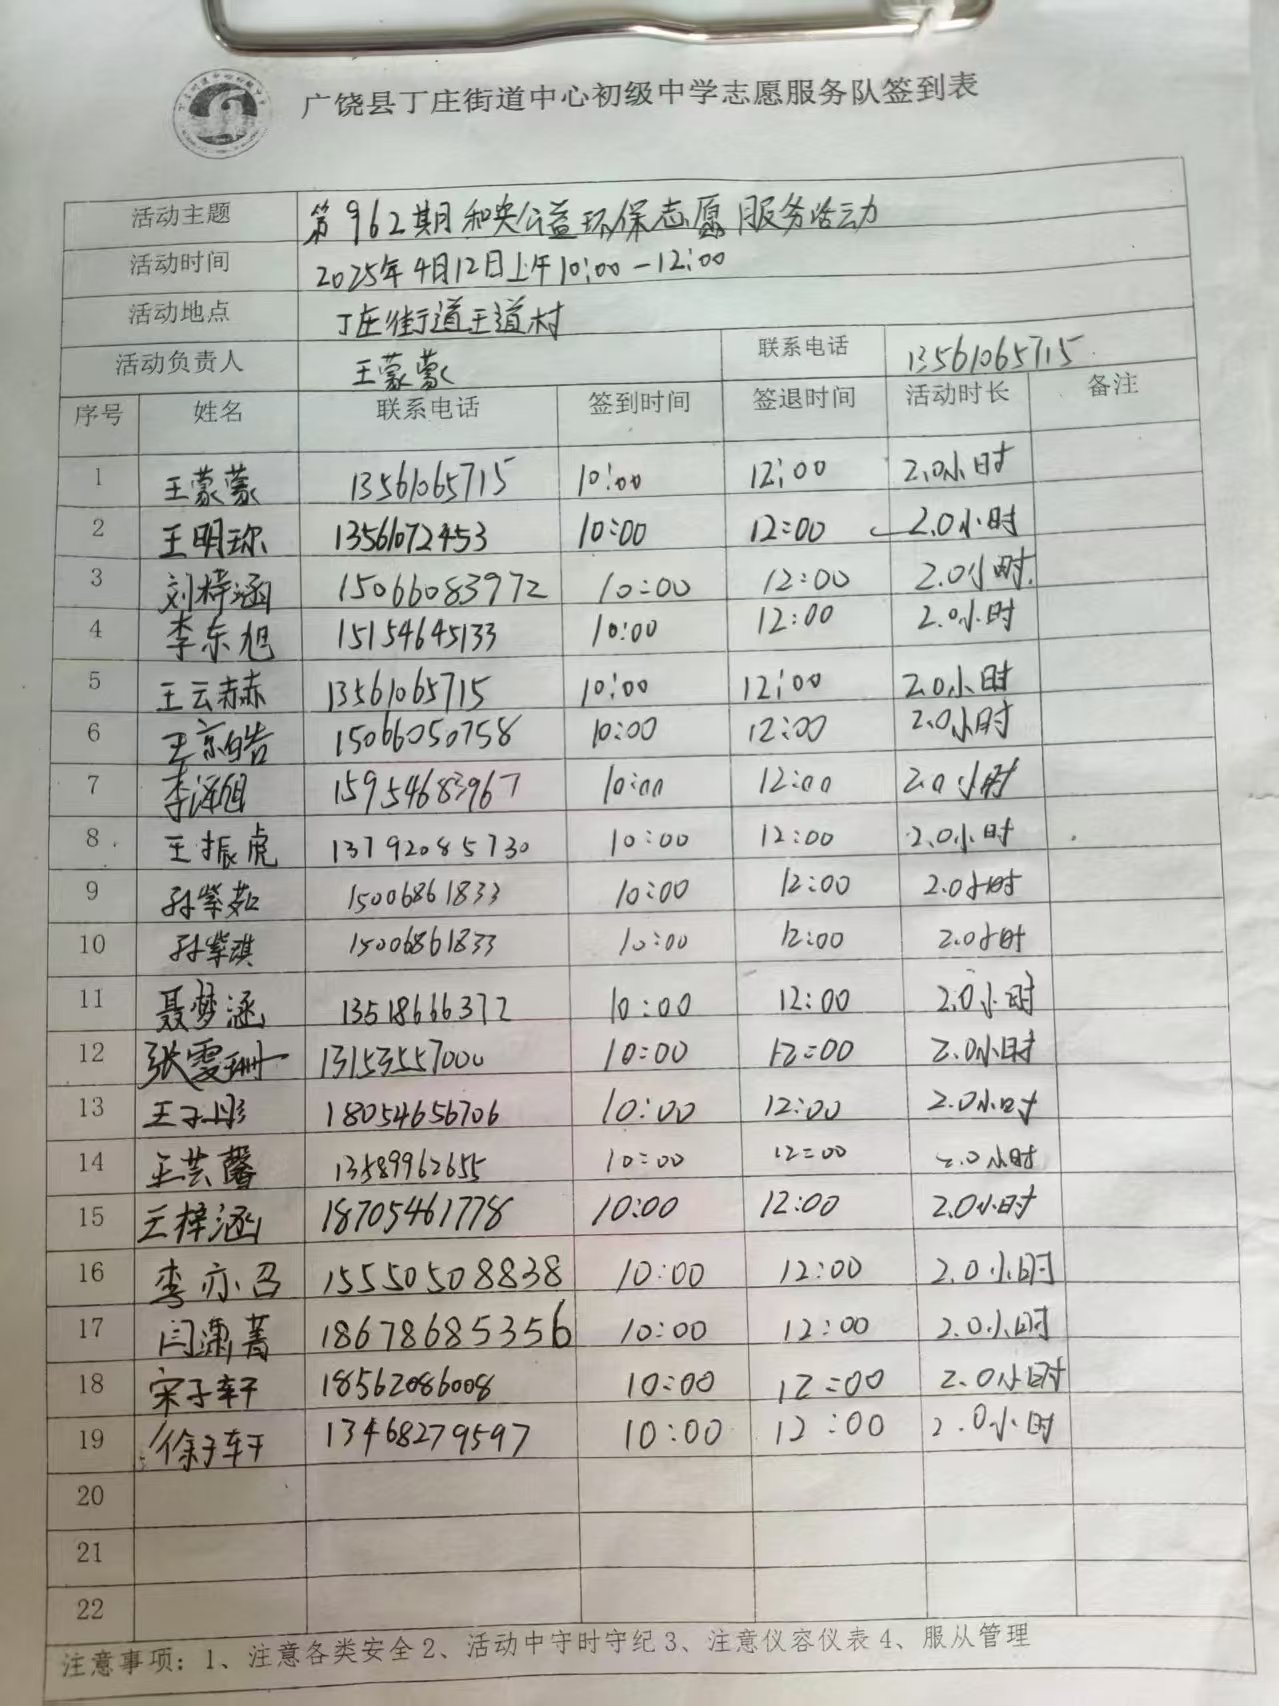 广饶县丁庄街道中心初级中学志愿服务队签到表
活动主题 第962期和央公益环保志愿服务活动
活动时间 2025年4月12日上午10:00-12:00
活动地点 丁庄街道王道村
活动负责人 王蒙蒙 联系电话 13561065715
序号 姓名 联系电话 签到时间 签退时间 活动时长 备注
1 王蒙蒙 13561065715 10:00 12:00 2.0小时
2 王明珎 13561072453 10:00 12:00 2.0小时
3 刘梓涵 15066083972 10:00 12:00 2.0小时.
4 李东旭 15154645133 10:00 12:00 2.0小时
5 王云赫 13561065715 10:00 12:00 2.0小时
6 王京皓 15066050758 10:00 12:00 2.0小时
7 李泽旭 15954683967 10:00 12:00 2.0小时
8 王振虎 13792085730 10:00 12:00 2.0小时
9 孙紫茹 15006861833 10:00 12:00 2.0小时
10 孙紫淇 15006861833 10:00 12:00 2.0小时
11 聂梦涵 13518666372 10:00 12:00 2.0小时
12 张雯珊 13153557000 10:00 12:00 2.0小时
13 王子彤 18054656706 10:00 12:00 2.0小时
14 王芸馨 13589962655 10:00 12:00 2.0小时
15 王梓涵 18705461778 10:00 12:00 2.0小时
16 李亦召 15550508838 10:00 12:00 2.0小时
17 闫潇菁 18678685356 10:00 12:00 2.0小时
18 宋子轩 18562086008 10:00 12:00 2.0小时
19 徐子轩 13468279597 10:00 12:00 2.0小时
20
21
22
注意事项：1、注意各类安全2、活动中守时守纪3、注意仪容仪表4、服从管理